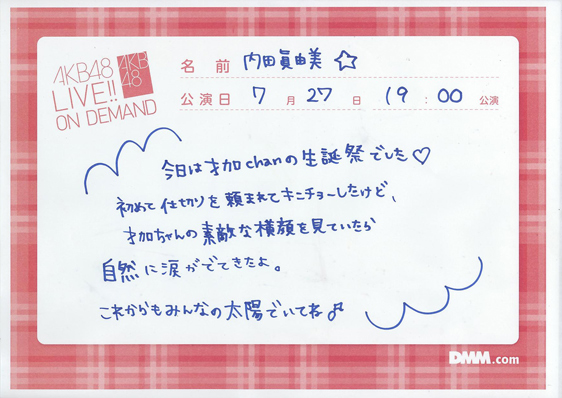 AKB48
LIVE!!
ON DEMAND
AKB
48
名前 内田眞由美☆
公演日 7月27日 19:00公演
今日は才加chanの生誕祭でした♡
初めて仕切りを頼まれてキンチョーしたけど、
才加ちゃんの素敵な横顔を見ていたら
自然に涙がでてきたよ。
これからもみんなの太陽でいてね♪
DMM.com